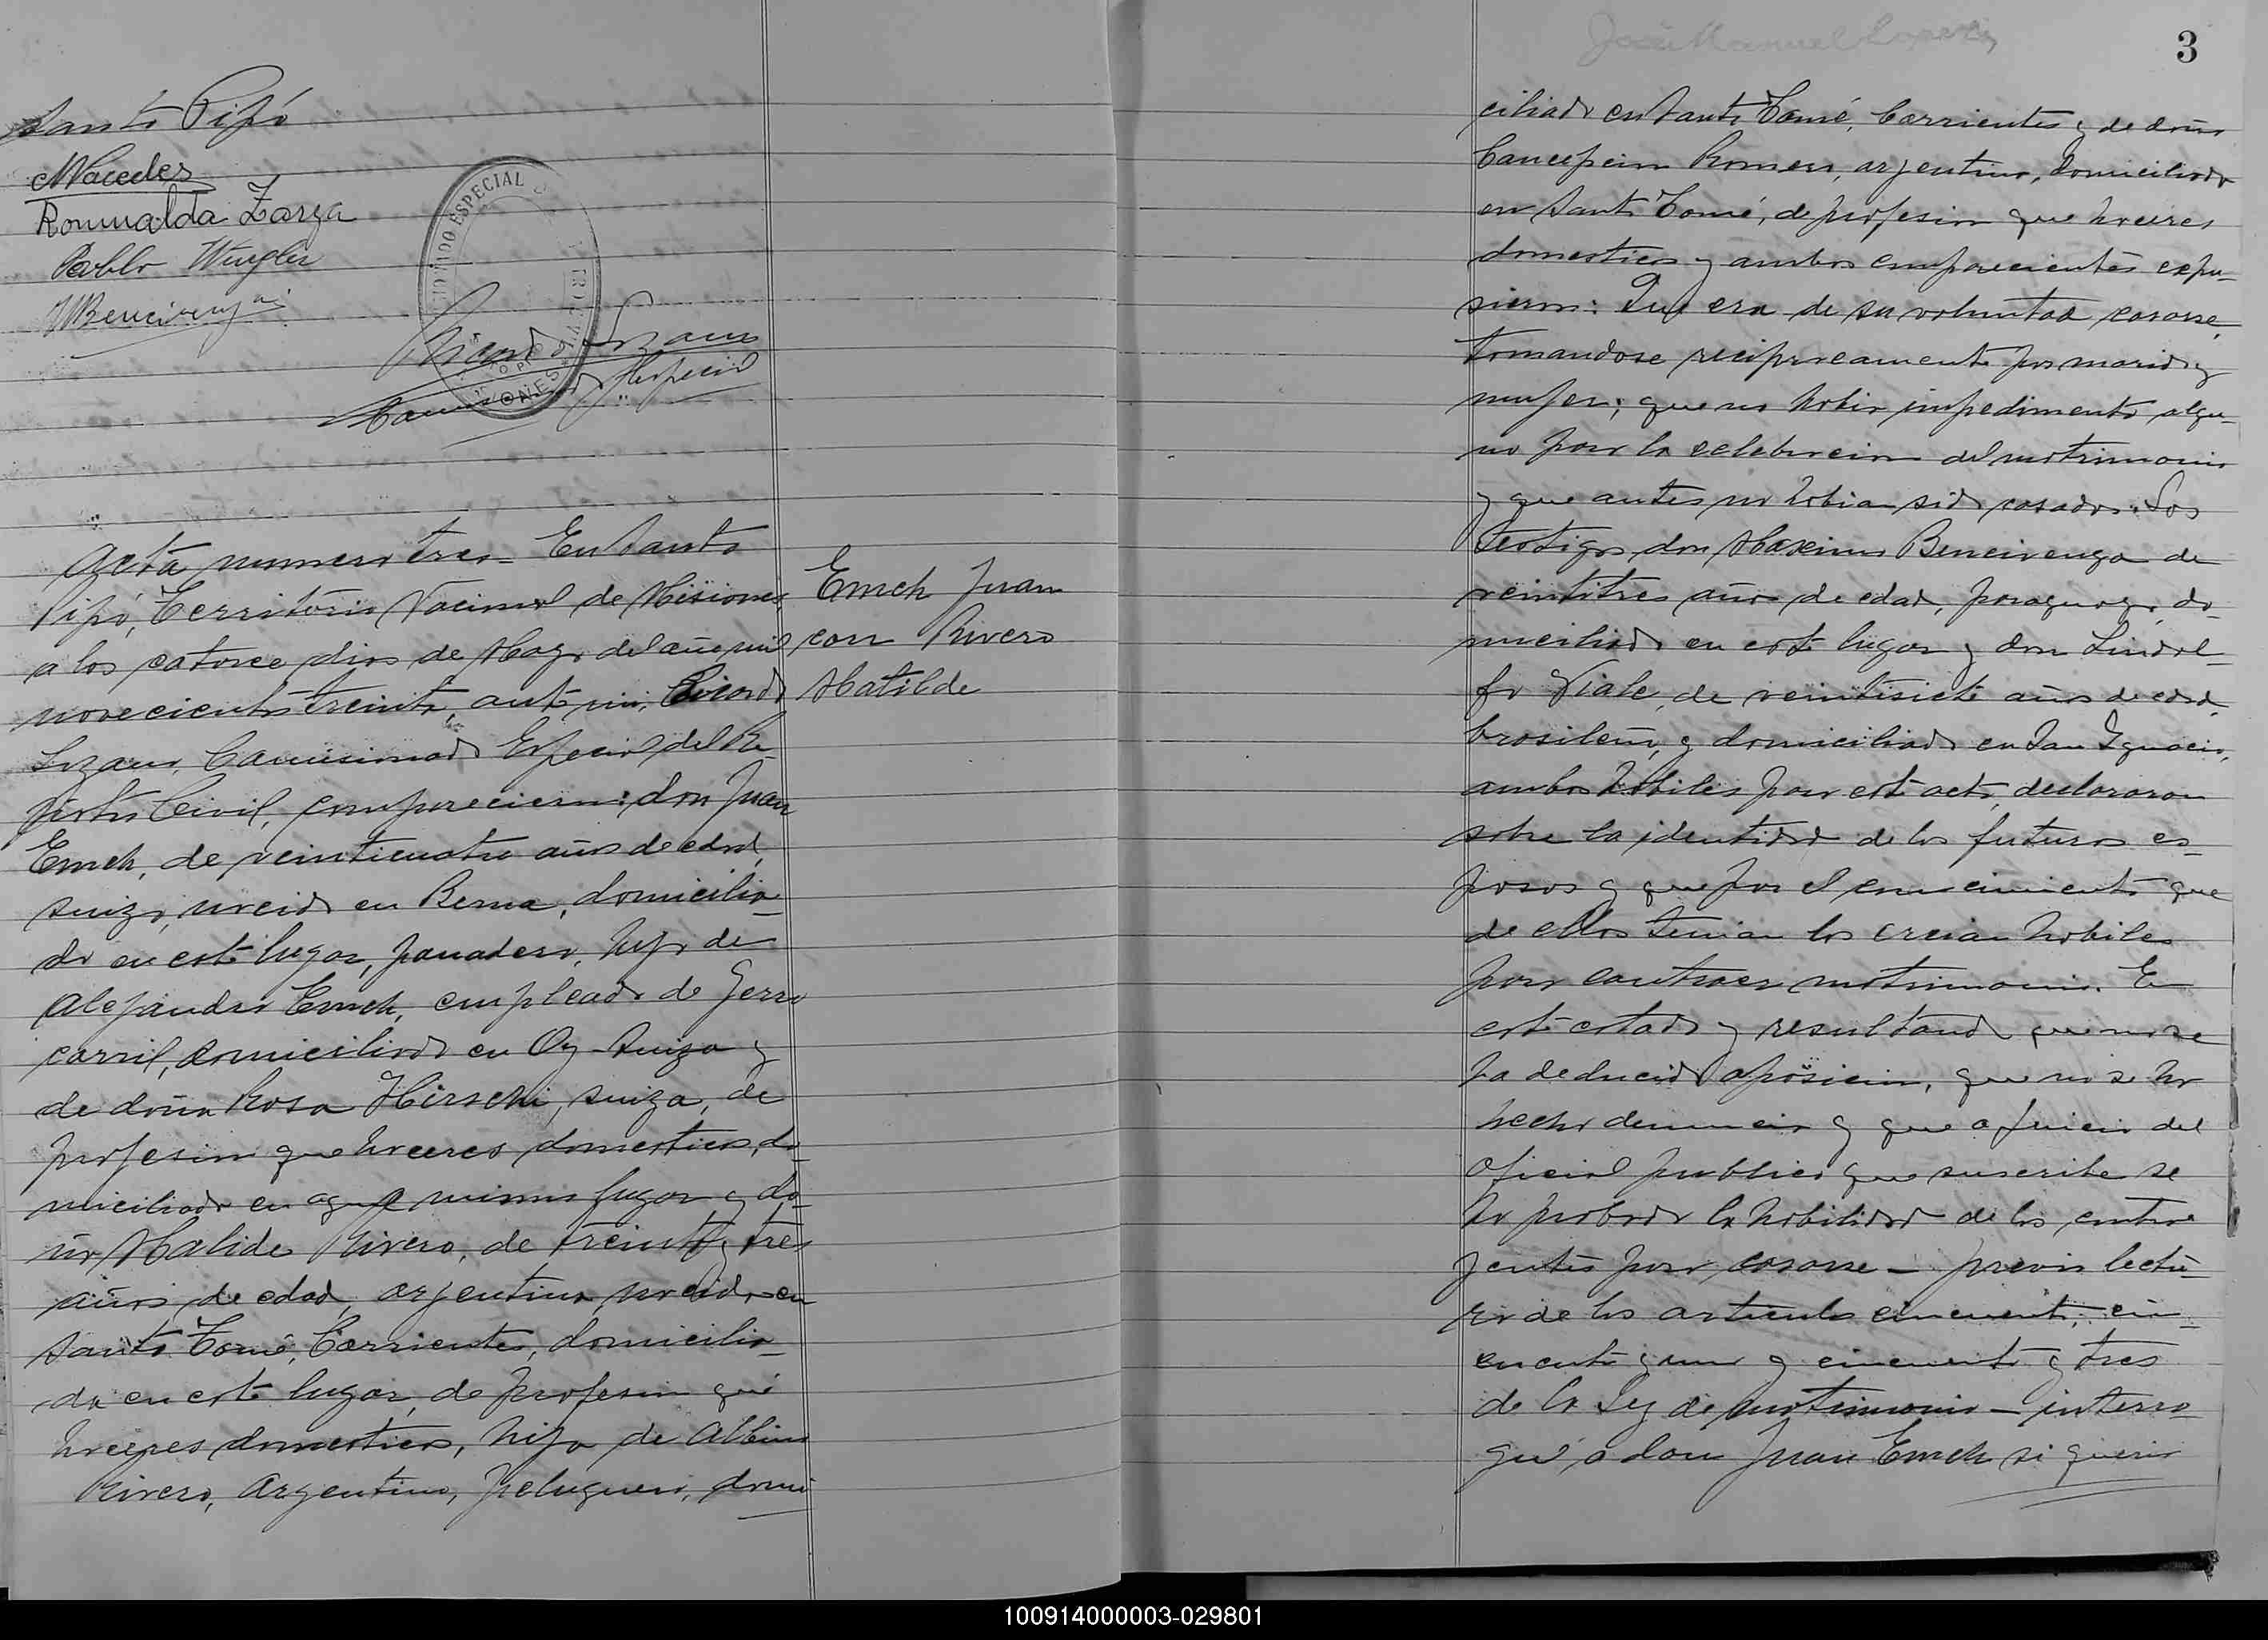 Santo Pipó
Romualda Zarza
Pablo Wingler
MBencivenga
Ricardo Lozano
Comisionado Especial
COMISIONADO ESPECIAL
MISIONES
Acta numero tres- En Santo
Pipó, Territorio Nacional de Misiones
a los catorce dias de Mayo del año mil
novecientos treinta, ante mi, Ricardo
Lozano, Comisionado Especial del Re-
jistro Civil, comparecieron: don Juan
Emch, de veinticuatro años de edad,
suizo, nacido en Berna, domicilia-
do en este lugar, panadero, hijo de
Alejandro Emch, empleado de ferro
carril, domiciliado en Suiza y
de doña Rosa Hirschi, suiza, de
profesion que haceres domesticos, do-
miciliada en aquel mismo lugar y do-
ña Matilde Rivero, de treinta y tres
años de edad, argentina, nacida en
Santo Tomé, Corrientes, domicilia-
da en este lugar, de profesion que
haceres domesticos, hija de Albino
Rivero, argentino, peluquero, domi
Emch Juan
con Rivero
Matilde
3
ciliado en Santo Tomé, Corrientes y de doña
Concepcion Romero, argentina, domiciliada
en Santo Tomé, de profesion que haceres
domesticos y ambos comparecientes expu-
sieron: Que era de su voluntad casarse,
tomandose reciprocamente por marido y
mujer; que no habia impedimento algu-
no para la celebracion del matrimonio
y que antes no habian sido casados. Los
testigos don Maximo Bencivenga de
veintitres años de edad, paraguayo, do-
miciliado en este lugar y don Lindol-
fo Viale, de veintisiete años de edad,
brasileño, y domiciliado en San Ignacio,
ambos habiles para este acto, declararon
sobre la identidad de los futuros es-
posos y que por el conocimiento que
de ellos tenian los creian habiles
para contraer matrimonio. En
este estado y resultando que no se
ha deducido oposicion, que no se ha
hecho denuncia y que a juicio del
Oficial publico que suscribe se
ha probado la habilidad de los contra
yentes para casarse - previa lectu-
ra de los articulos cincuenta, cin-
cuenta y uno y cincuenta y tres
de la Ley de Matrimonio - interro-
gué a don Juan Emch si queria
100914000003-029801